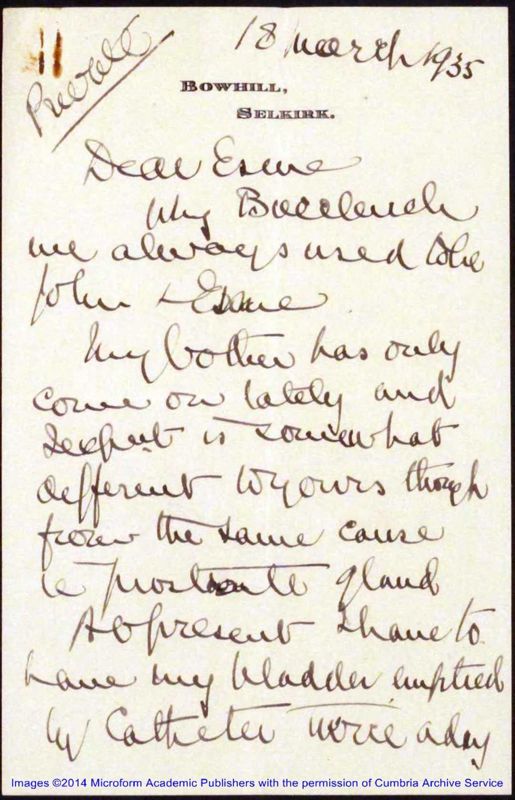 18 March 1935
Private
BOWHILL,
SELKIRK.
Dear Esme
Why Buccleuch
we always used to be
John & Esme
My bother has only
come on lately and
I expect is somewhat
different to yours though
from the same cause
ie prostate gland
At present I have to
have my bladder emptied
by Catheter twice a day
Images ©2014 Microform Academic Publishers with the permission of Cumbria Archive Service